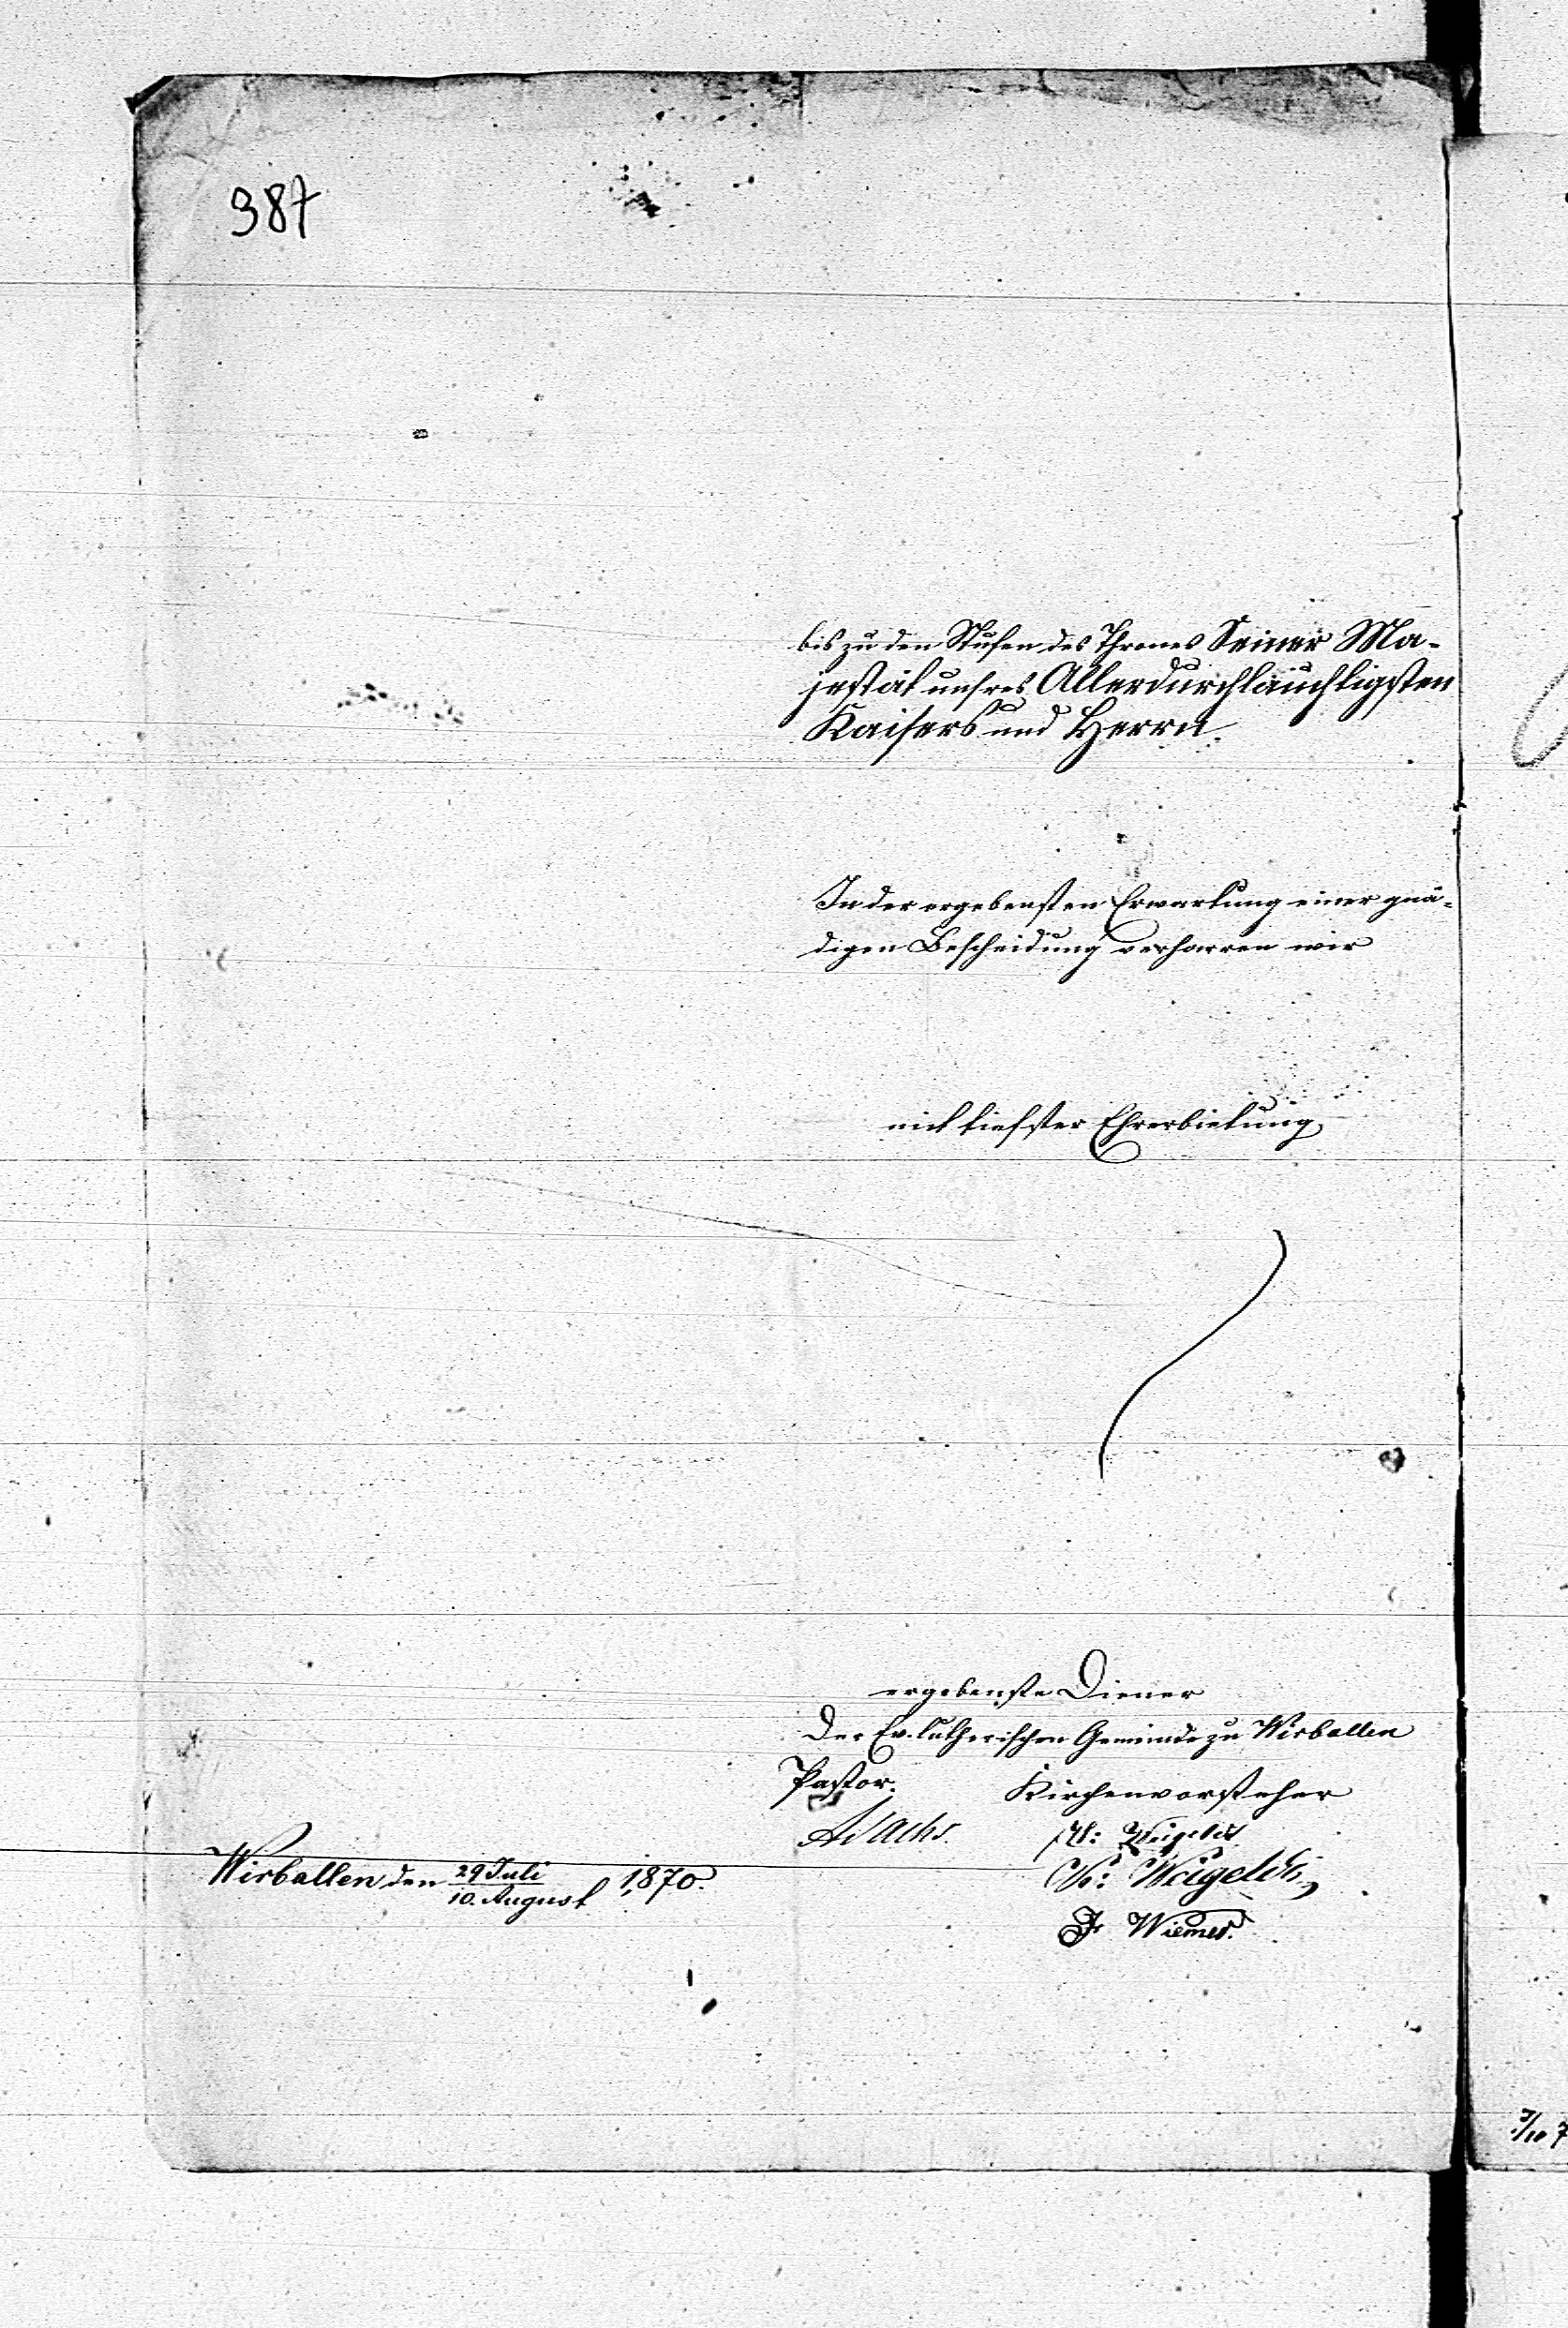 387
bis zu den Stufen des Thrones Seiner Ma-
jestät unsres Allerdurchlauchtigsten
Kaisers und Herrn.
In der ergebensten Erwartung einer gnä-
digen Bescheidung verharren wir
mit tiefster Ehrerbietung
ergebenste Diener
Der Ev. lutherischen Gemeinde zu Wirballen
Pastor. Kirchenvorsteher
Weigeldt
Weigeldt
Wirballen, den 29 Juli / 10. August 1870.
Fr Wiemer.